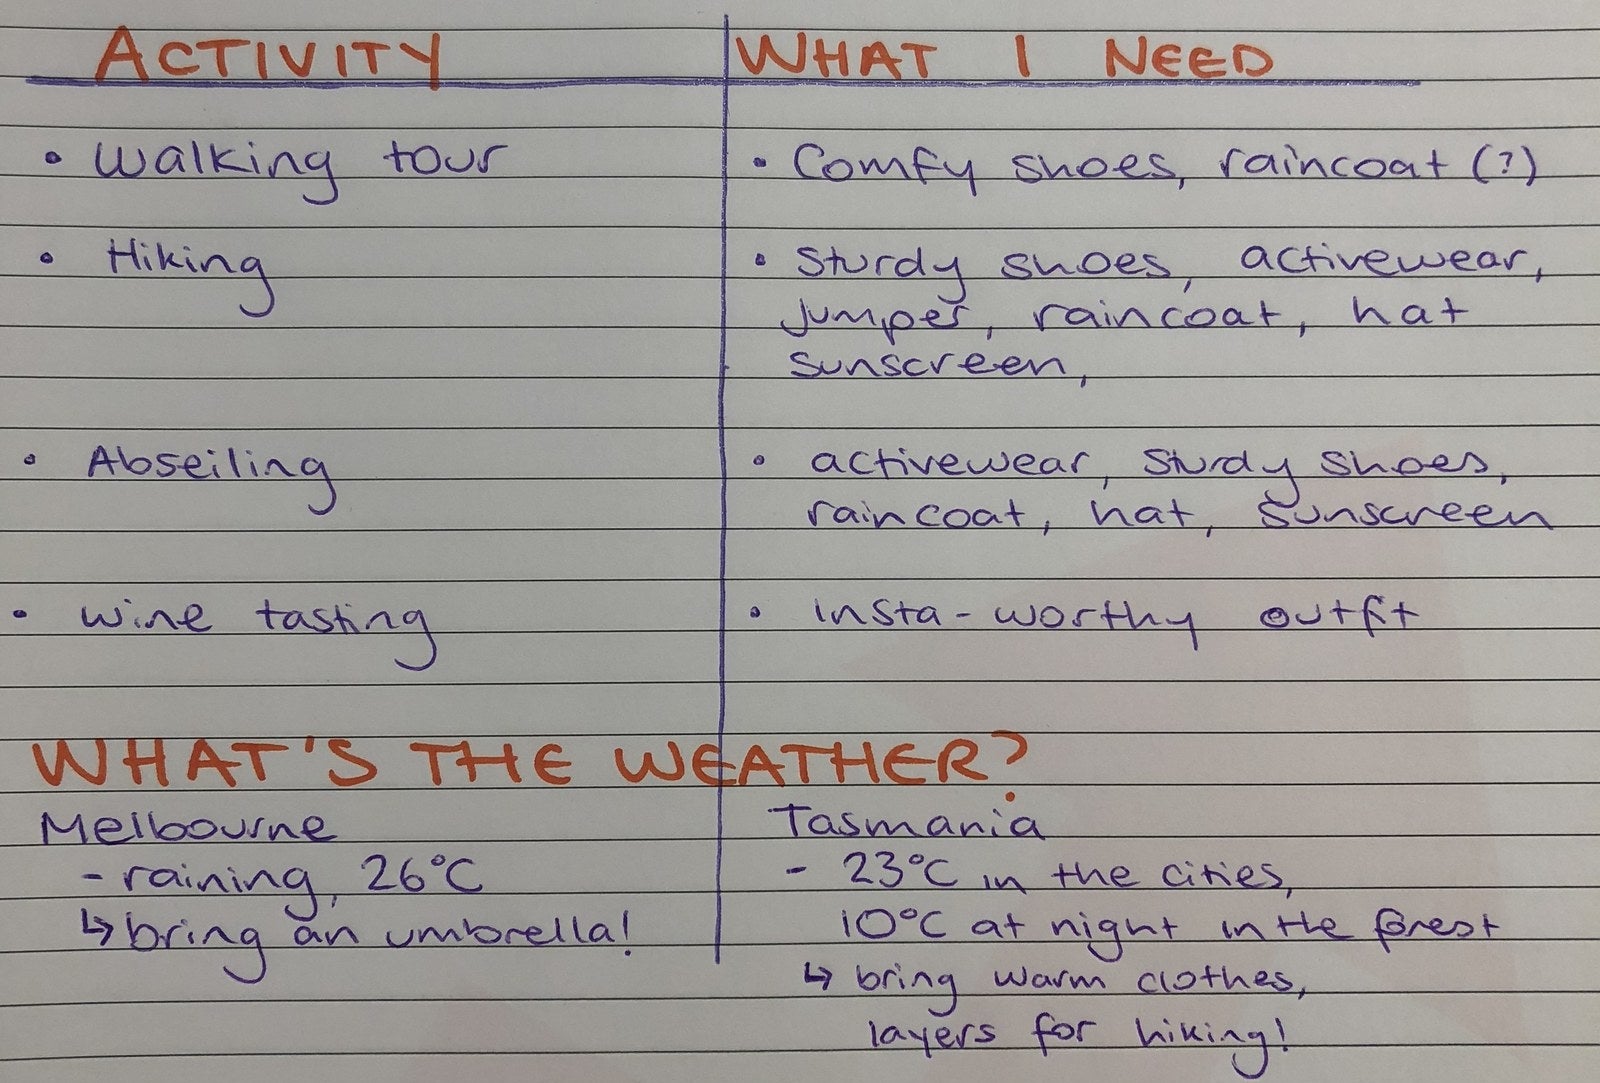 ACTIVITY
WHAT I NEED
• Walking tour
• Comfy shoes, raincoat (?)
• Hiking
• Sturdy shoes, activewear,
jumper, raincoat, hat
sunscreen,
• Abseiling
• activewear, sturdy shoes,
raincoat, hat, sunscreen
• wine tasting
• insta-worthy outfit
WHAT'S THE WEATHER?
Melbourne
- raining, 26°C
↳ bring an umbrella!
Tasmania
- 23°C in the cities,
10°C at night in the forest
↳ bring warm clothes,
layers for hiking!